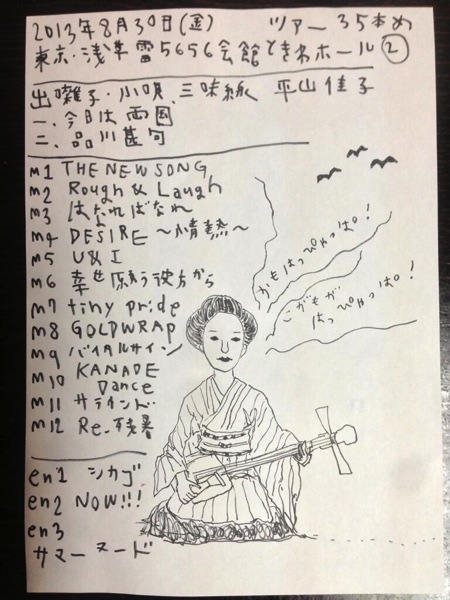 2013年8月30日(金) ツアー35本め
東京・浅草雷5656会館ときわホール②
出囃子・小唄、三味線 平山佳子
一、今日は両国
二、品川甚句
m1 THE NEW SONG
m2 Rough & Laugh
m3 はなればなれ
m4 DESIRE 〜情熱〜
m5 U & I
m6 幸せ願う彼方から
m7 tiny pride
m8 GOLDWRAP
m9 バイタルサイン
m10 KANADE Dance
m11 サラインド
m12 Re.残暑
en1 シカゴ
en2 NOW!!!
en3
サマーヌード
かもはっぴゃっぱ!
こがもが
はっぴゃっぱ!